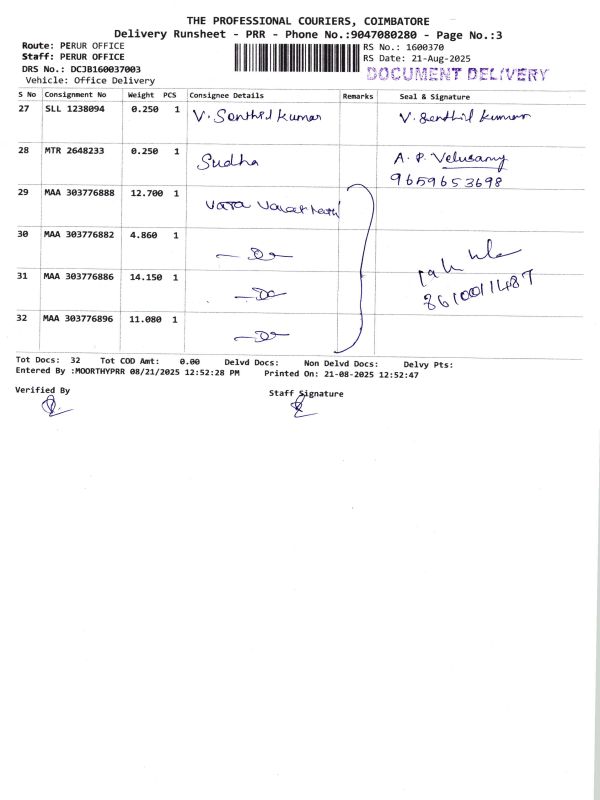 THE PROFESSIONAL COURIERS, COIMBATORE
Delivery Runsheet - PRR - Phone No.:9047080280 - Page No.:3
Route: PERUR OFFICE
Staff: PERUR OFFICE
DRS No.: DCJB160037003
Vehicle: Office Delivery
RS No.: 1600370
RS Date: 21-Aug-2025
DOCUMENT DELIVERY
S No Consignment No Weight PCS Consignee Details Remarks Seal & Signature
27 SLL 1238094 0.250 1 V. Senthil Kumar V. Senthil Kumar
28 MTR 2648233 0.250 1 Sudha A. P. Velusamy
9659653698
29 MAA 303776888 12.700 1
30 MAA 303776882 4.860 1 Do
31 MAA 303776886 14.150 1 Do
8610011487
32 MAA 303776896 11.080 1 Do
Tot Docs: 32 Tot COD Amt: 0.00 Delvd Docs: Non Delvd Docs: Delvy Pts:
Entered By :MOORTHYPRR 08/21/2025 12:52:28 PM Printed On: 21-08-2025 12:52:47
Verified By Staff Signature